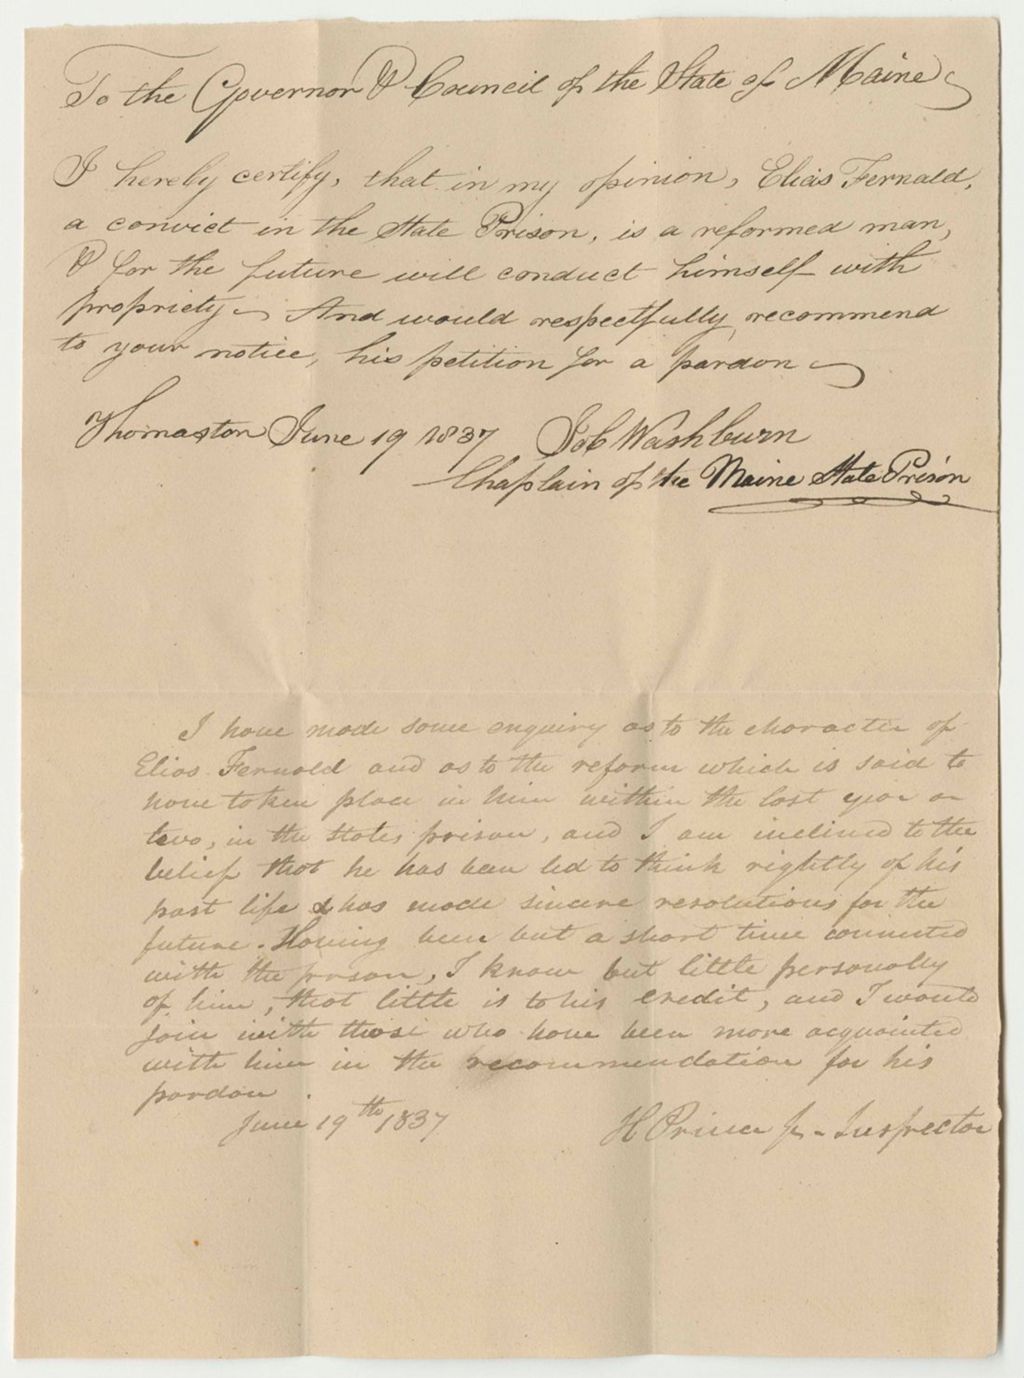 To the Governor & Council of the State of Maine
I hereby certify, that in my opinion, Elias Fernald,
a convict in the State Prison, is a reformed man,
& for the future will conduct himself with
propriety. And would respectfully recommend
to your notice, his petition for a pardon
Thomaston June 19 1837 Job Washburn
Chaplain of the Maine State Prison
I have made some enquiry as to the character of
Elias Fernald and as to the reform which is said to
have taken place in him within the last year or
two, in the States prison, and I am inclined to the
belief that he has been led to think rightly of his
past life & has made sincere resolutions for the
future. Having been but a short time connected
with the prison, I know but little personally
of him, that little is to his credit, and I would
join with those who have been more acquainted
with him in the recommendation for his
pardon
June 19th 1837 H Prince Jr - Inspector